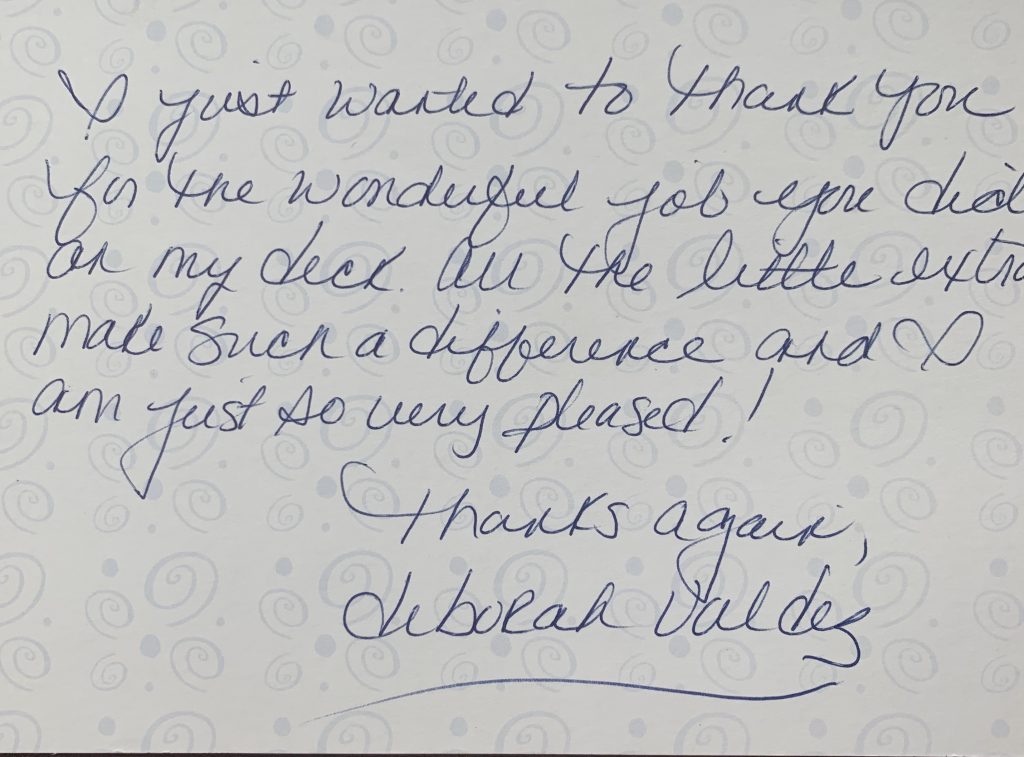 I just wanted to thank you
for the wonderful job you did
on my deck. All the little extra
make such a difference and I
am just so very pleased!
Thanks again,
Deborah Valdez